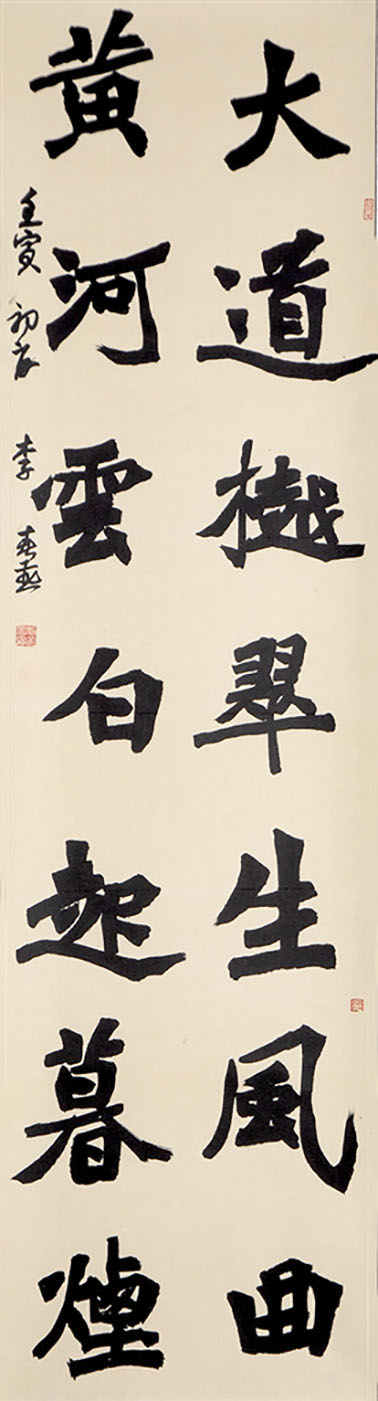 大道樾翠生風曲
黄河雲白起暮煙
壬寅初夏 李